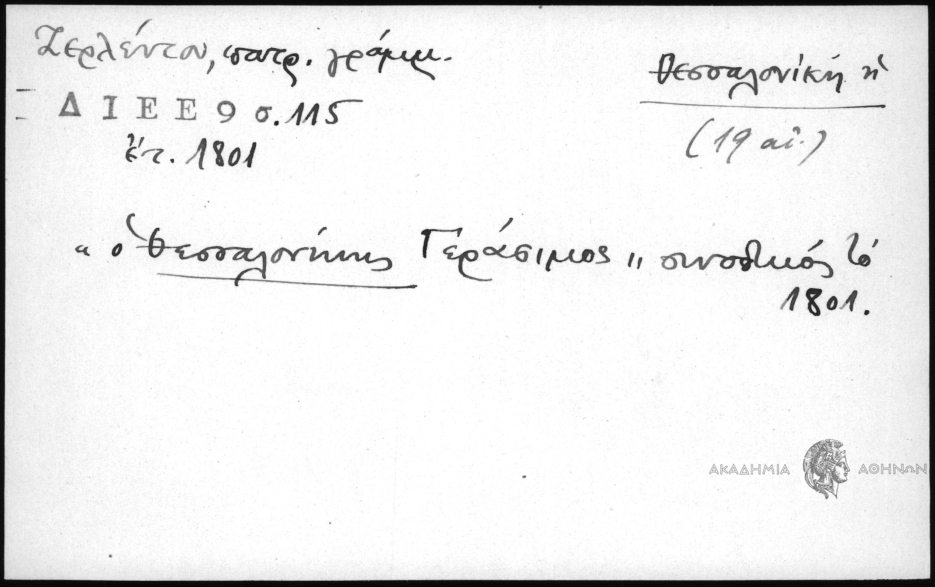 Ζερλέντου, πατρ. γράμμ.
Θεσσαλονίκη ἡ
Δ Ι Ε Ε 9 σ. 115
(19 αἰ.)
ἔτ. 1801
“ ὁ Θεσσαλονίκης Γεράσιμος „ συνοδικός τό
1801.
ΑΚΑΔΗΜΙΑ ΑΘΗΝΩΝ